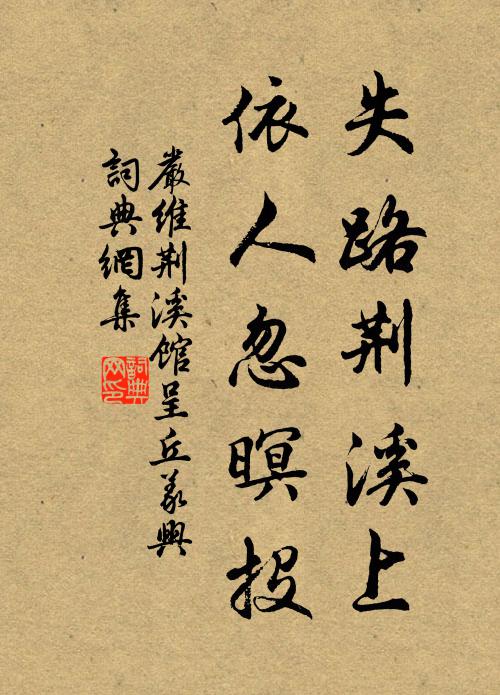 失路荆溪上
依人忽暝投
嚴維荆溪館呈丘義興
詞典網集
詞典網印